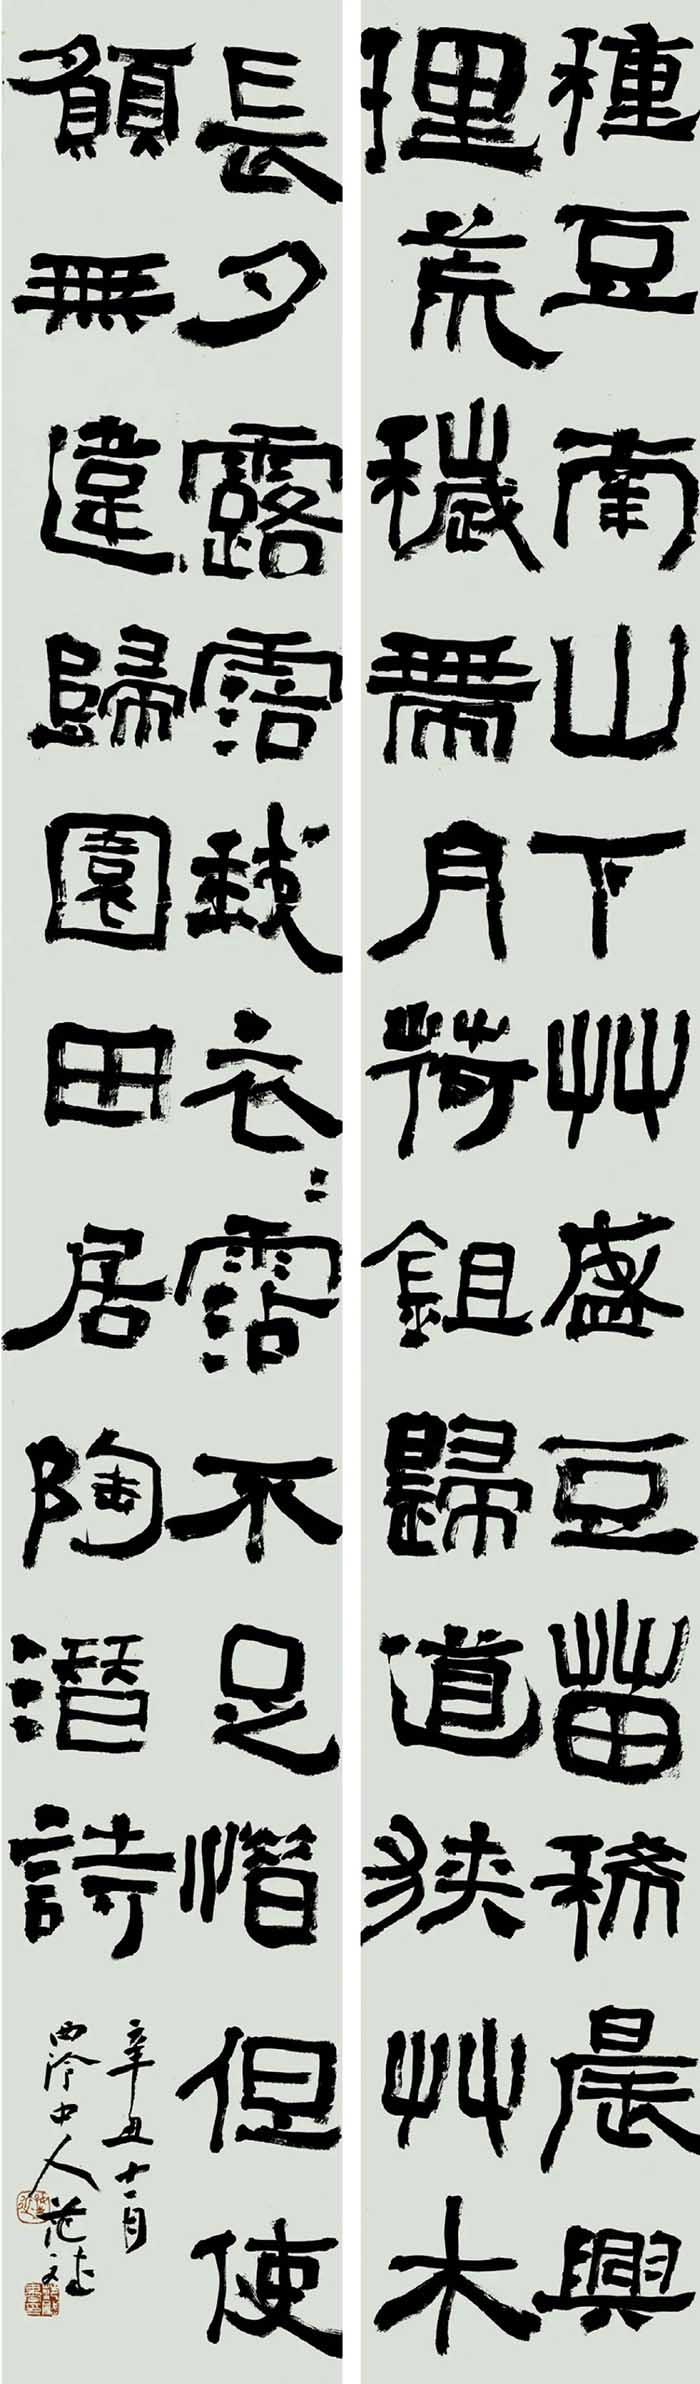 種豆南山下艸盛豆苗稀晨興
理荒穢帶月荷鉏歸道狹艸木
長夕露霑我衣〻霑不足惜但使
願無違歸園田居陶潛詩
辛丑十一月
西泠中人范